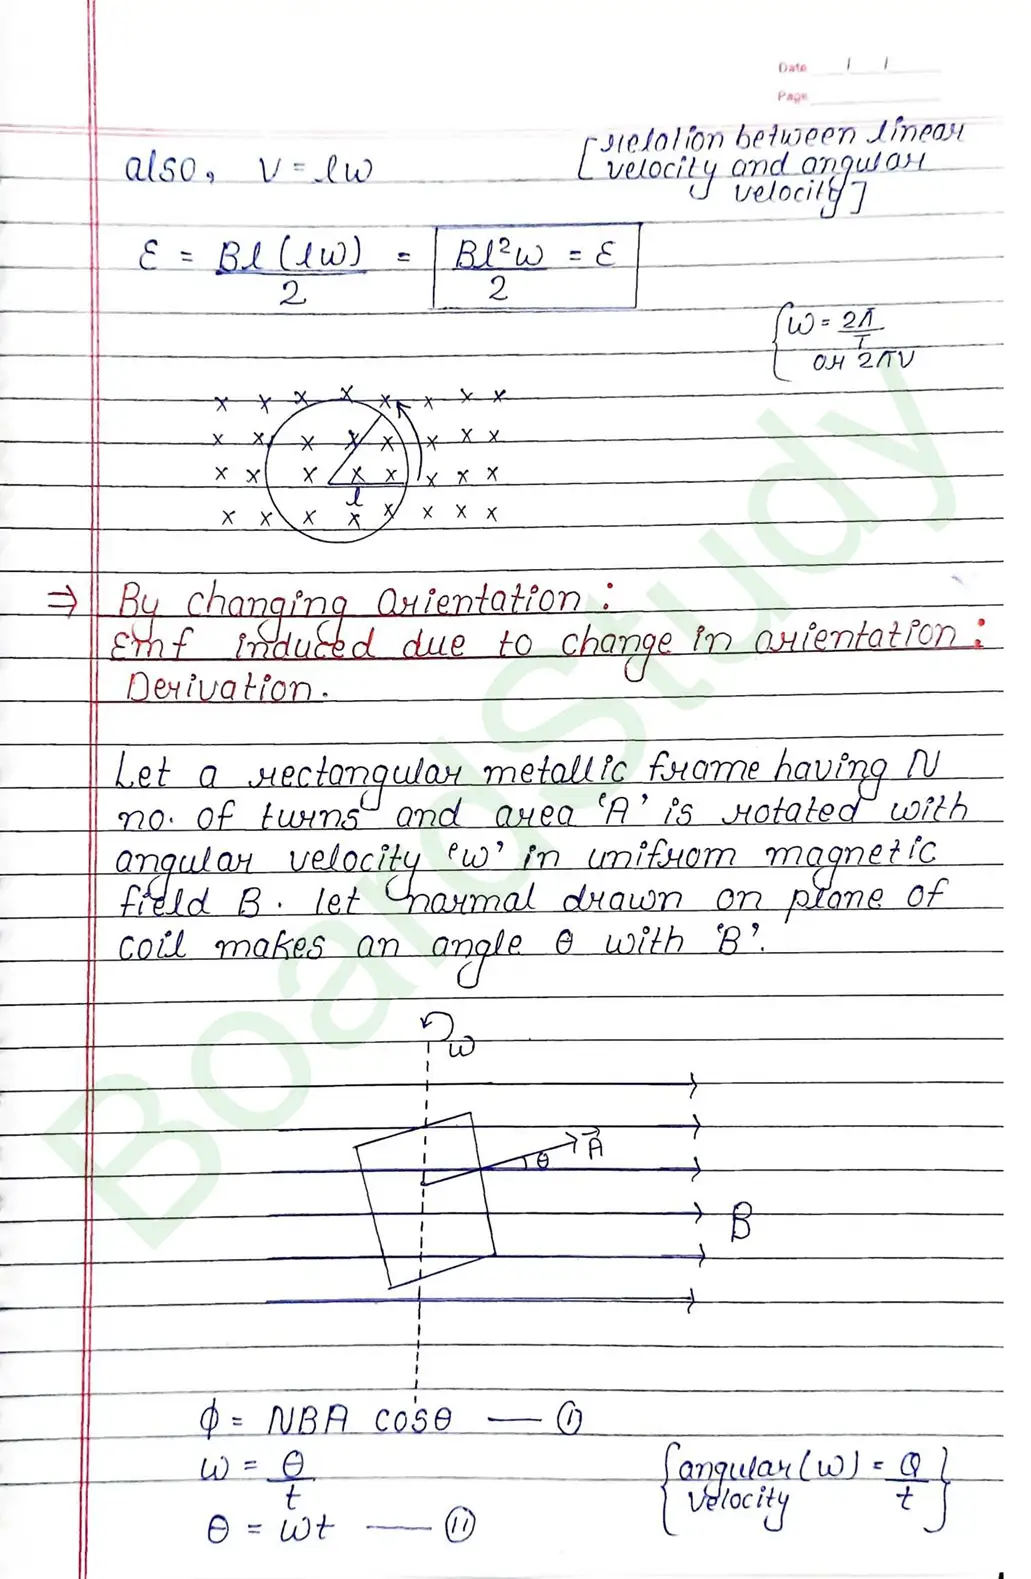 Date / /
Page
also, V = lω [relation between linear
velocity and angular
velocity]
ε = Bl (lω) / 2 = Bl²ω / 2 = ε
{ω = 2π / T
or 2πν
x x x x x x x x
x x x x x x x x
x x x x x x x x
l
x x x x x x x x
⇒ By changing orientation :
Emf induced due to change in orientation :
Derivation.
Let a rectangular metallic frame having N
no. of turns and area 'A' is rotated with
angular velocity 'ω' in unifrom magnetic
field B . let normal drawn on plane of
coil makes an angle θ with 'B'.
ω
θ A⃗
B
ϕ = NBA cosθ — (i)
ω = θ / t {angular (ω) = θ / t}
velocity
θ = ωt — (ii)
BoardStudy